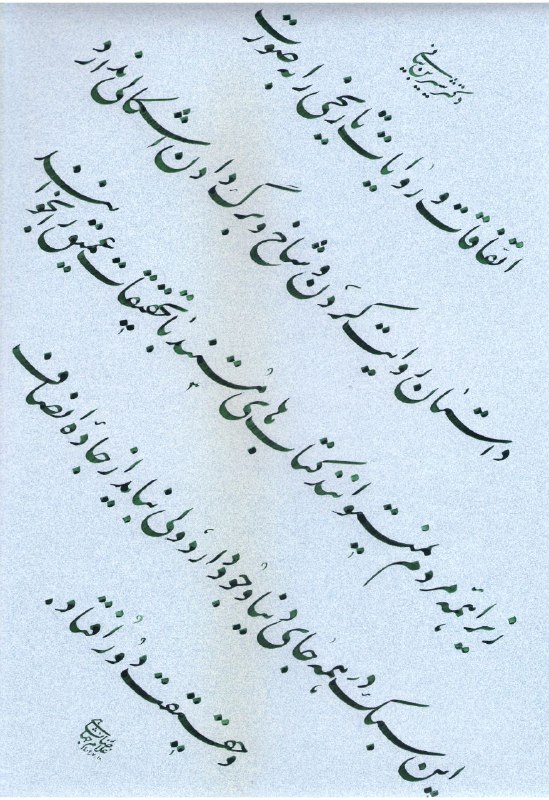 دکتر شیرین بیانی
اتفاقات و روایات تاریخی را به صورت
داستان روایت کردن و شاخ و برگ دادن اشکالی ندارد
زیرا همه مردم نمیتوانند کتاب های مستند با تحقیقات عمیق را بخوانند
این سبک در همه جای دنیا وجود دارد، ولی نباید از جادهٔ انصاف
و حقیقت دور افتاد.